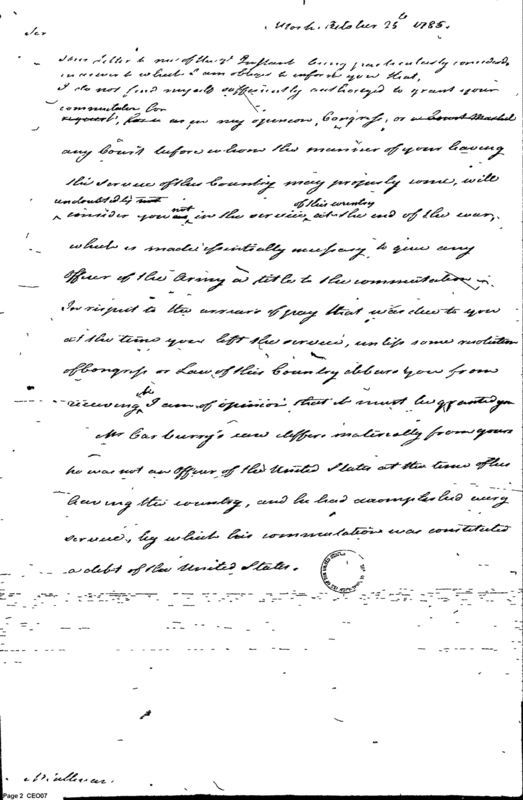 York October 25th 1785.
Sir
Your Letter to me of the 7th Instant being particularly considered,
in answer to which I am obliged to inform you that,
I do not find myself sufficiently authorized to grant your
commutation
request, as in my opinion, Congress, or a Court Martial
any Court before whom the manner of your leaving
the service of this Country may properly come, will
undoubtedly not of this country
consider you not in the service at the end of the war,
which is made essentially necessary to give any
Officer of the Army a title to the commutation
In respect to the arrears of pay that was due to you
at the time you left the service, unless some resolution
of Congress or Law of this Country debars you from
receiving it, I am of opinion that it must be granted you
Mr Carburry's case differs materially from yours
he was not an Officer of the United States at the time of his
leaving the country, and he had accomplished every
service, by which his commutation was constituted
a debt of the United States.
Page 2 CEO07